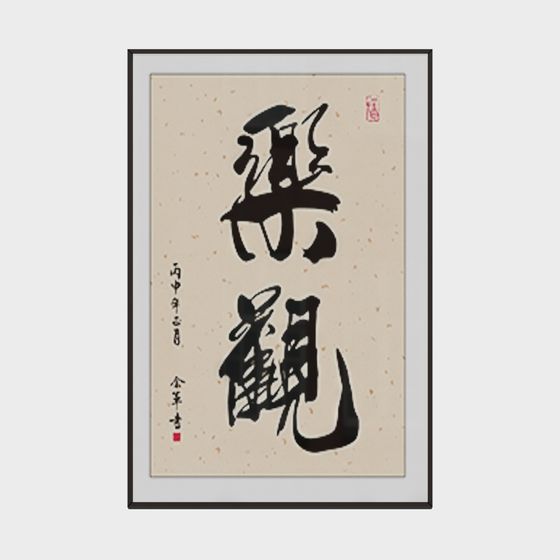 樂觀
丙申年正月
余革書